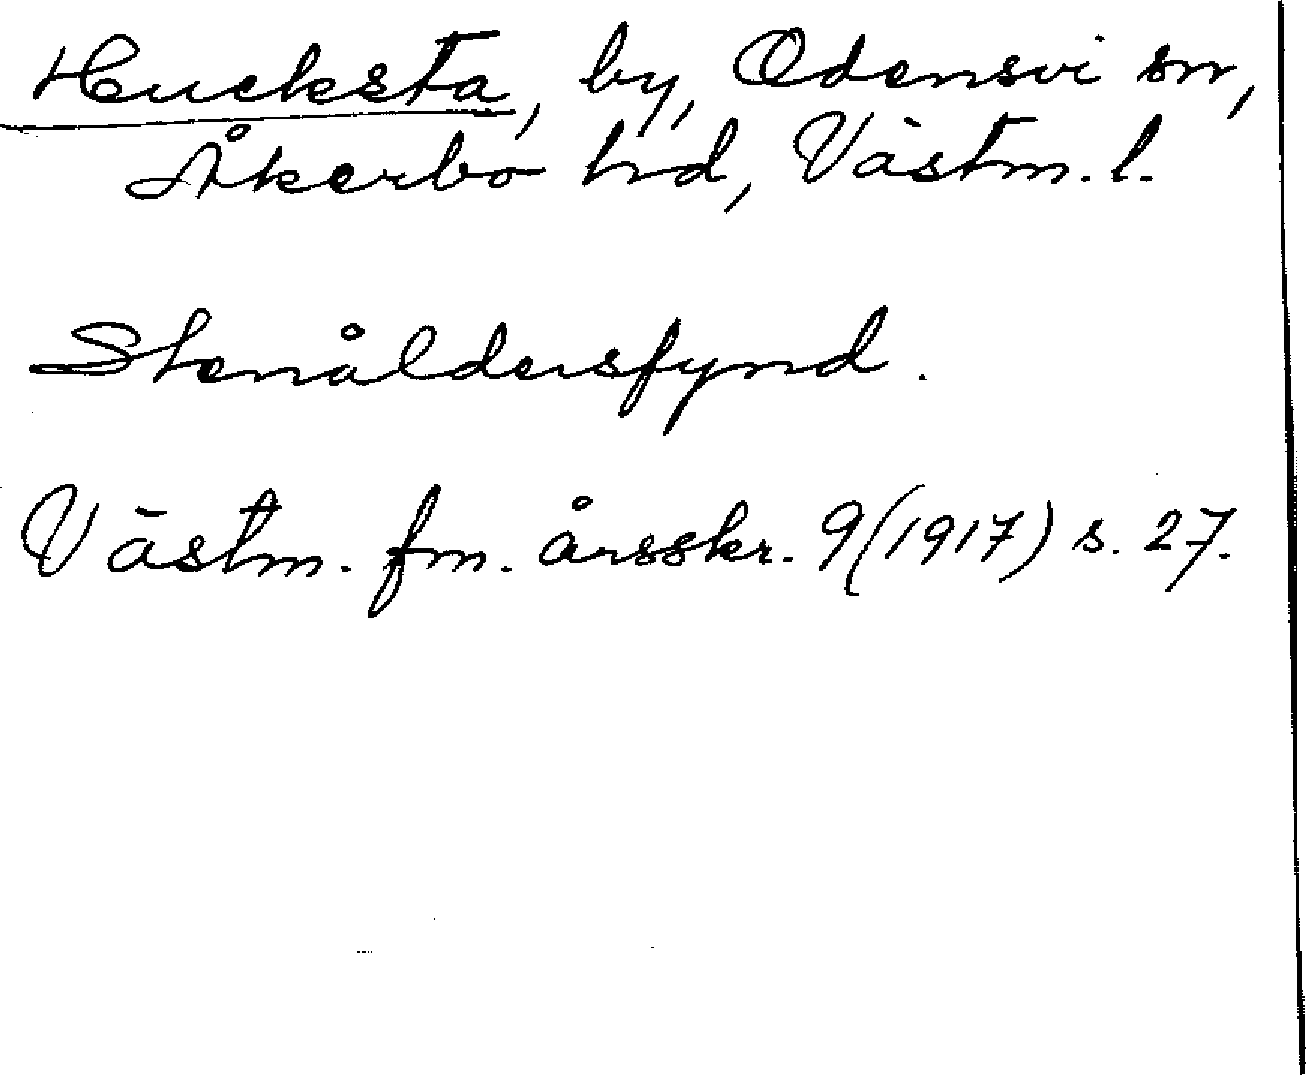 Hucksta, by, Odensvi sn,
Åkerbo hd, Västm. l.
Stenåldersfynd.
Västm. fm. årsskr. 9 (1917) s. 27.